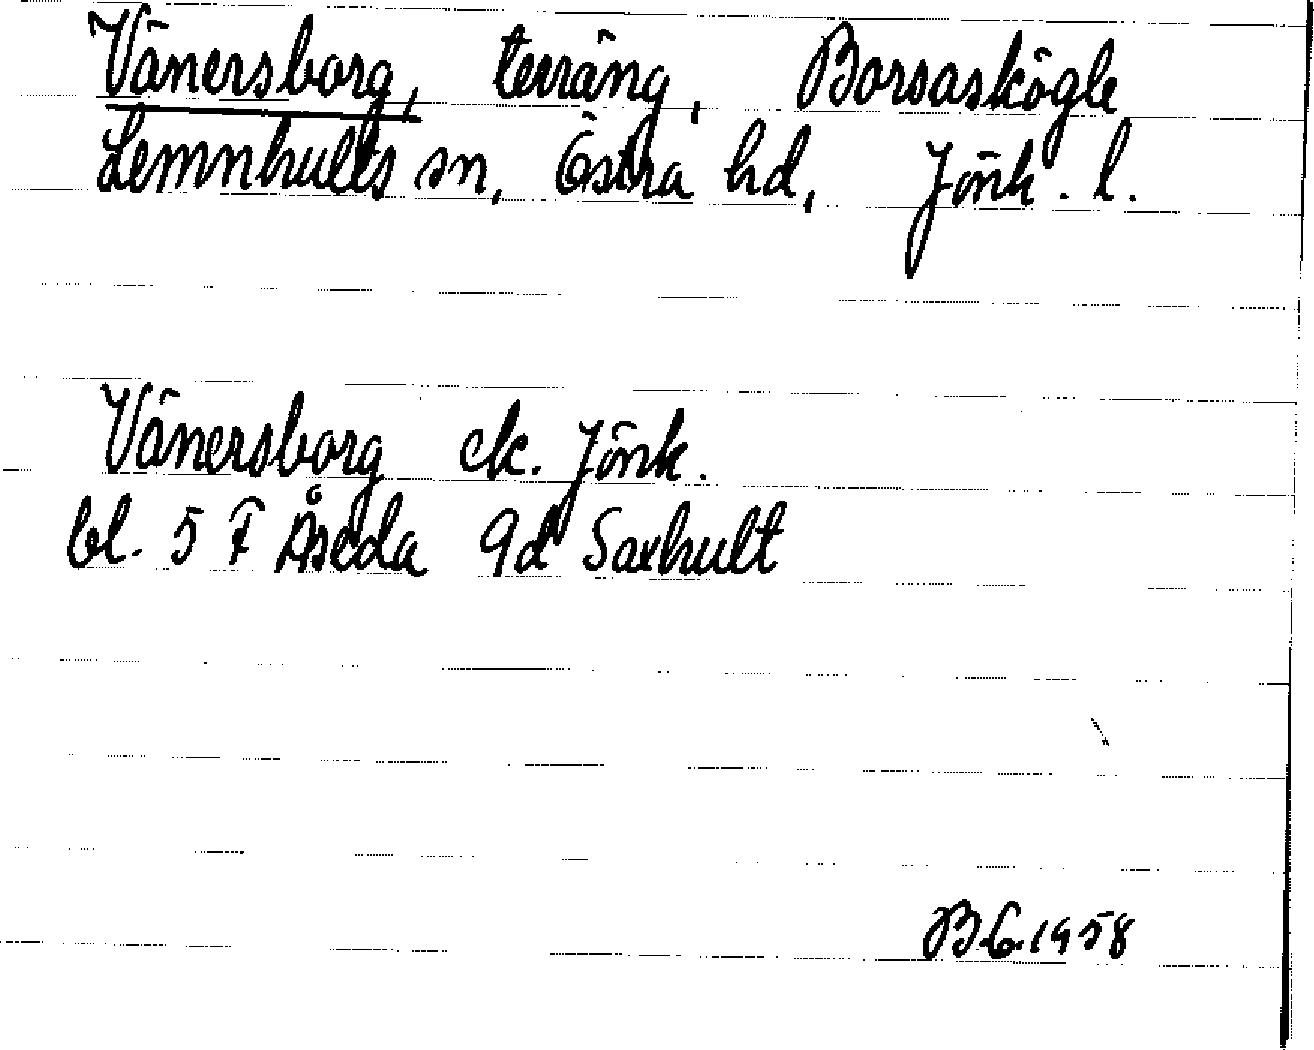 Vänersborg, terräng, Borsaskögle
Lemnhults sn, Östra hd, Jönk. l.
Vänersborg ek. Jönk.
bl. 5 F Åseda 9d Saxhult
B G. 1958